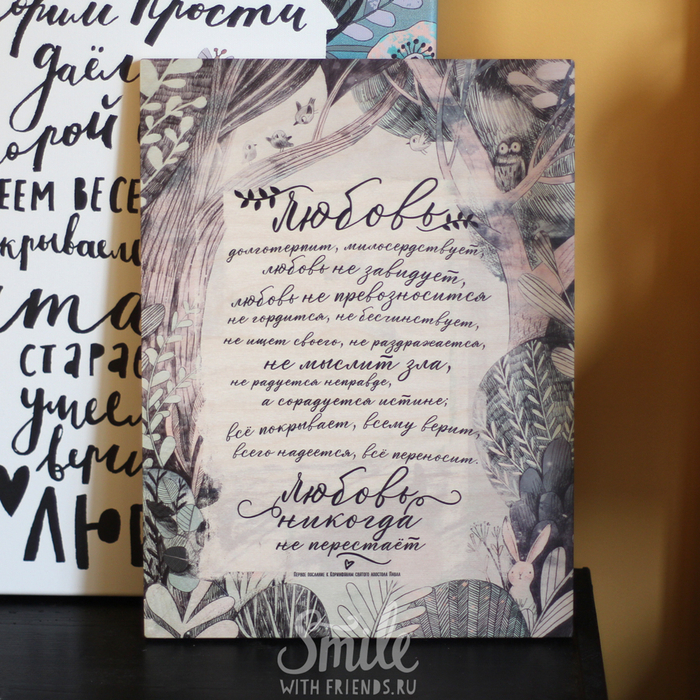 орим прости
даём
орой
еем весе
крываем
та
стара
умеем
вери
лю
Любовь
долготерпит, милосердствует,
любовь не завидует,
любовь не превозносится
не гордится, не бесчинствует,
не ищет своего, не раздражается,
не мыслит зла,
не радуется неправде,
а сорадуется истине;
всё покрывает, всему верит,
всего надеется, всё переносит.
Любовь
никогда
не перестаёт
Первое послание к Коринфянам святого апостола Павла
Smile
WITH FRIENDS.RU